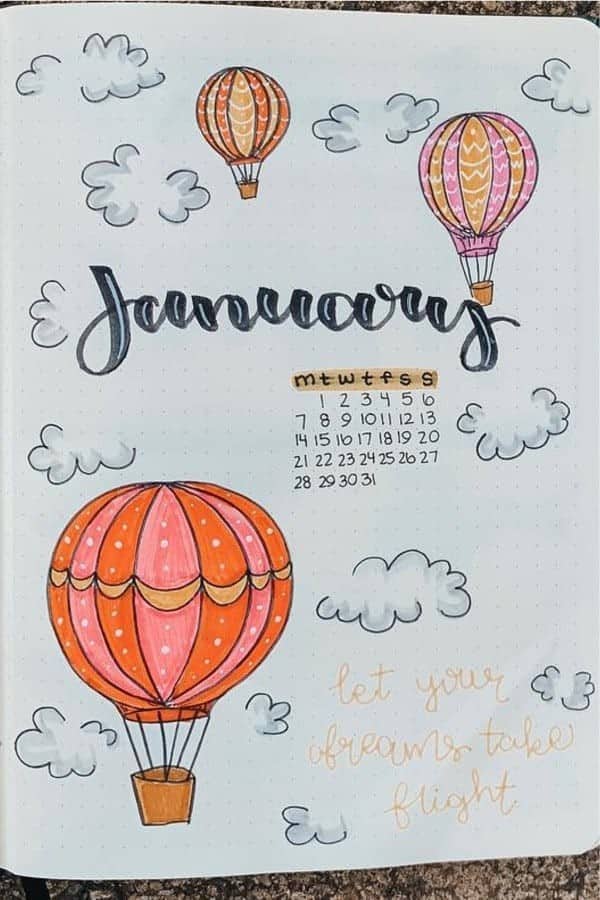 January
m t w t f s s
1 2 3 4 5 6
7 8 9 10 11 12 13
14 15 16 17 18 19 20
21 22 23 24 25 26 27
28 29 30 31
let your
dreams take
flight.